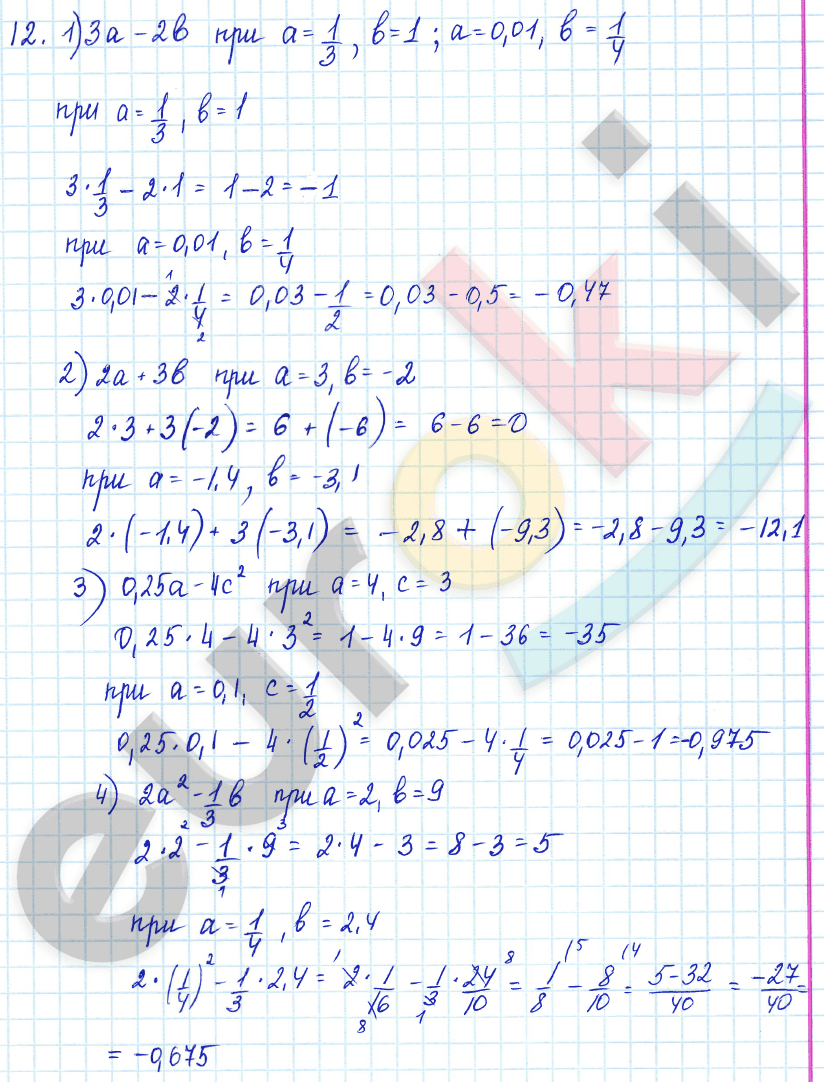 12. 1) 3a - 2в при a = 1/3, в = 1; a = 0,01, в = 1/4
при a = 1/3, в = 1
3·1/3 - 2·1 = 1 - 2 = -1
при a = 0,01, в = 1/4
3·0,01 - 2·1/4 = 0,03 - 1/2 = 0,03 - 0,5 = -0,47
2) 2a + 3в при a = 3, в = -2
2·3 + 3(-2) = 6 + (-6) = 6 - 6 = 0
при a = -1,4, в = -3,1
2·(-1,4) + 3(-3,1) = -2,8 + (-9,3) = -2,8 - 9,3 = -12,1
3) 0,25a - 4c² при a = 4, c = 3
0,25·4 - 4·3² = 1 - 4·9 = 1 - 36 = -35
при a = 0,1, c = 1/2
0,25·0,1 - 4·(1/2)² = 0,025 - 4·1/4 = 0,025 - 1 = -0,975
4) 2a² - 1/3в при a = 2, в = 9
2·2² - 1/3·9 = 2·4 - 3 = 8 - 3 = 5
при a = 1/4, в = 2,4
2·(1/4)² - 1/3·2,4 = 2·1/16 - 1/3·24/10 = 1/8 - 8/10 = 5-32/40 = -27/40 =
= -0,675
euroki